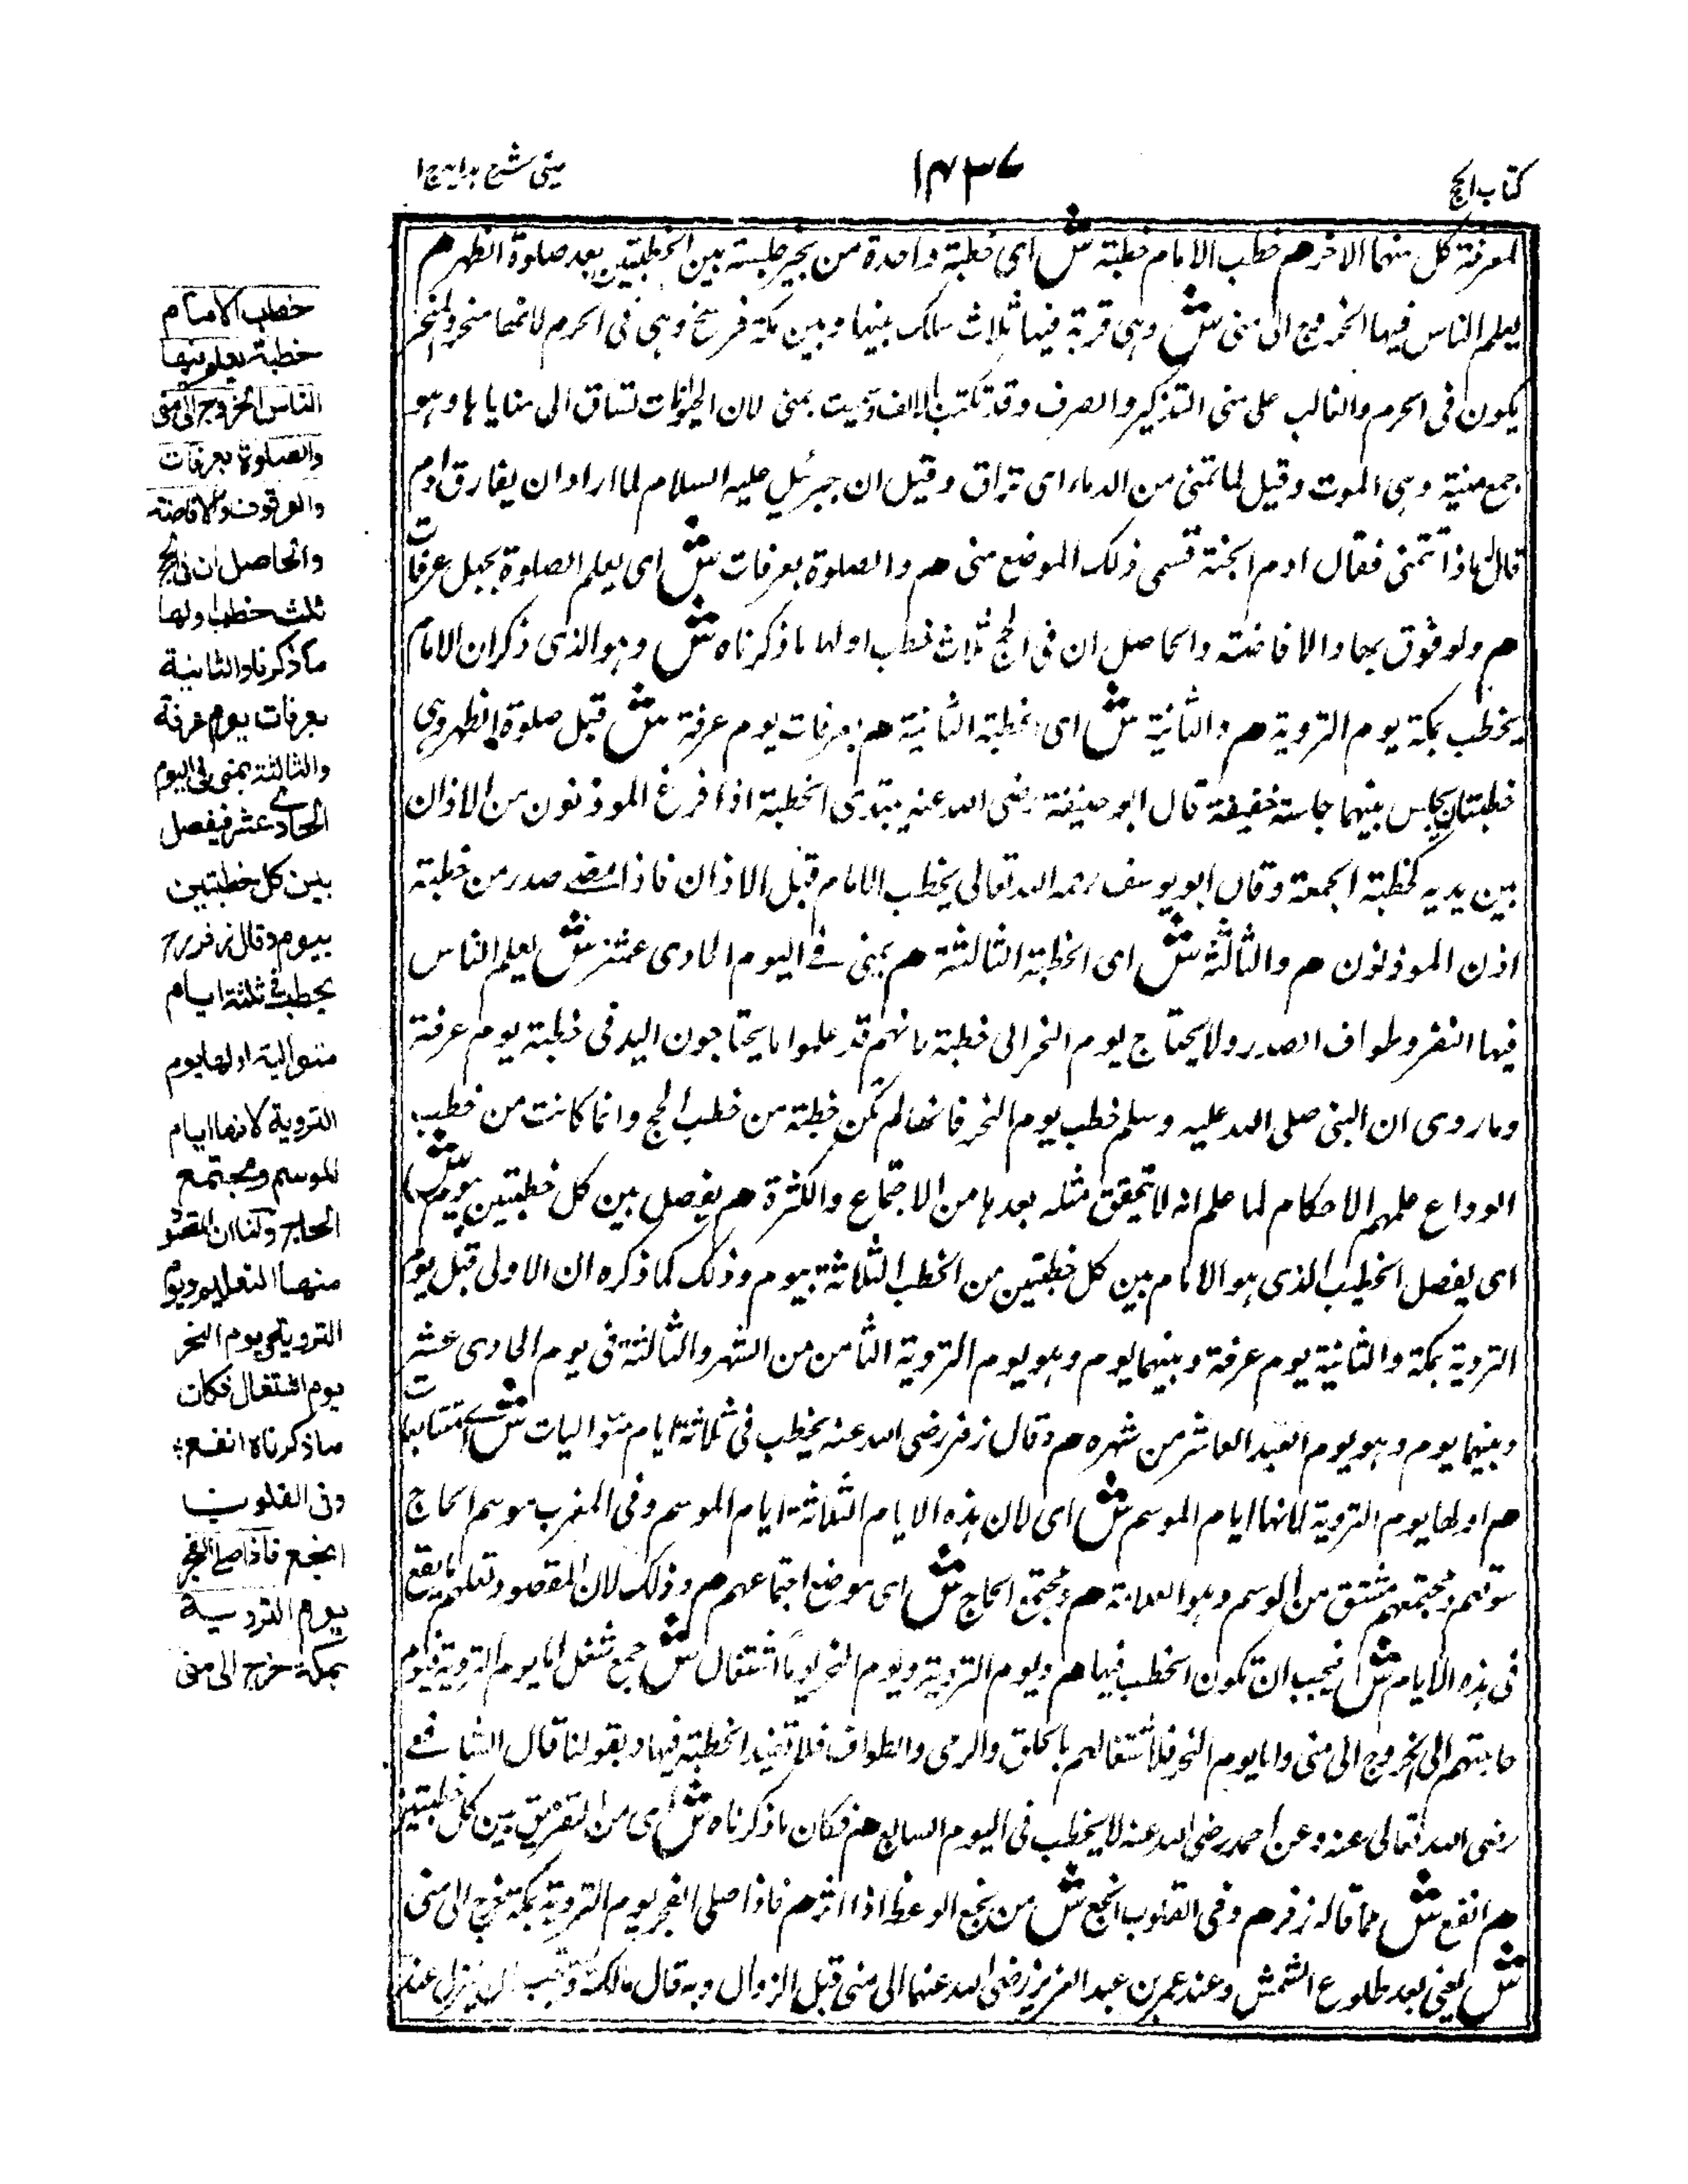 كتاب الحج
١٤٣٧
عينى شرح هدايه ج ١
لمعرفة كل منهما الاخر هم خطب الامام خطبة ش اى خطبة واحدة من غير جلسة بين الخطبتين بعد صلوة الظهر هم
يعلم الناس فيها الخروج الى منى ش وهى قرية فيها ثلاث سكك بينها وبين مكة فرسخ وهى فى الحرم لانها منحر والمنحر
يكون فى الحرم والغالب على منى التذكير والصرف وقد تكتب بالالف وسميت بمنى لان الحيوانات تساق الى مناياها وهو
جمع منية وهى الموت وقيل لما تمنى من الدماء اى تراق وقيل ان جبرئيل عليه السلام لما اراد ان يفارق ادم
قال له ماذا تتمنى فقال ادم الجنة فسمى ذلك الموضع منى هم والصلوة بعرفات ش اى يعلم الصلوة بجبل عرفات
هم والوقوف بها والافاضة والحاصل ان فى الحج ثلاث خطب اولها ما ذكرناه ش وهو الذى ذكر ان الامام
يخطب بمكة يوم التروية هم والثانية ش اى الخطبة الثانية هم بعرفات يوم عرفة ش قبل صلوة الظهر وهى
خطبتان يجلس بينهما جلسة خفيفة قال ابو حنيفة رضى الله عنه يبتدى الخطبة اذا فرغ الموذنون من الاذان
بين يديه كخطبة الجمعة وقال ابو يوسف رحمه الله تعالى يخطب الامام قبل الاذان فاذا مضى صدر من خطبته
اذن الموذنون هم والثالثة ش اى الخطبة الثالثة هم بمنى فى اليوم الحادى عشر ش يعلم الناس
فيها النفر وطواف الصدر ولا يحتاج يوم النحر الى خطبة لانهم قد علموا ما يحتاجون اليه فى خطبة يوم عرفة
وما روى ان النبى صلى الله عليه وسلم خطب يوم النحر فانها لم تكن خطبة من خطب الحج وانما كانت من خطب
الوداع علمهم الاحكام لما علم انه لا يتحقق مثله بعدها من الاجتماع والكثرة هم يفصل بين كل خطبتين بيوم ش
اى يفصل الخطيب الذى هو الامام بين كل خطبتين من الخطب الثلاثة بيوم وذلك كما ذكره ان الاولى قبل يوم
التروية بمكة والثانية يوم عرفة وبينهما يوم وهو يوم التروية الثامن من الشهر والثالثة فى يوم الحادى عشر
وبينهما يوم وهو يوم العيد العاشر من شهره هم وقال زفر رضى الله عنه يخطب فى ثلاثة ايام متواليات ش اى متتابعات
هم اولها يوم التروية لانها ايام الموسم ش اى لان هذه الايام الثلاثة ايام الموسم وفى المغرب موسم الحاج
سوقهم ومجتمعهم مشتق من الوسم وهو العلامة هم ومجتمع الحاج ش اى موضع اجتماعهم هم وذلك لان المقصود تعلمهم ما يقع
فى هذه الايام ش فيجب ان تكون الخطب فيها هم ويوم التروية ويوم النحر يوما اشتغال ش جمع شغل اما يوم التروية فيوم
حاجتهم الى الخروج الى منى واما يوم النحر فلاشتغالهم بالحلق والرمى والطواف فلا تفيد الخطبة فيها وبقولنا قال الشافعى
رضى الله تعالى عنه وعن احمد رضى الله عنه لا يخطب فى اليوم السابع هم فكان ما ذكرناه ش اى من التفريق بين كل خطبتين
هم انفع ش مما قاله زفر هم وفى القلوب انجع ش من نجع الوعظ اذا اثر هم فاذا صلى الفجر يوم التروية بمكة خرج الى منى
ش يعنى بعد طلوع الشمس وعند عمر بن عبد العزيز رضى الله عنهما الى منى قبل الزوال وبه قال مالك ان ينزل عند
خطب الامام
خطبة يعلم فيها
الناس الخروج الى منى
والصلوة بعرفات
والوقوف والافاضة
والحاصل ان فى الحج
ثلث خطب اولها
ما ذكرنا والثانية
بعرفات يوم عرفة
والثالثة بمنى فى اليوم
الحادى عشر فيفصل
بين كل خطبتين
بيوم وقال زفر رح
يخطب فى ثلثة ايام
متوالية اولها يوم
التروية لانها ايام
الموسم ومجتمع
الحاج ولنا ان المقصود
منها التعليم ويوم
التروية ويوم النحر
يوم اشتغال فكان
ما ذكرناه انفع
وفى القلوب
انجع فاذا صلى الفجر
يوم التروية
بمكة خرج الى منى